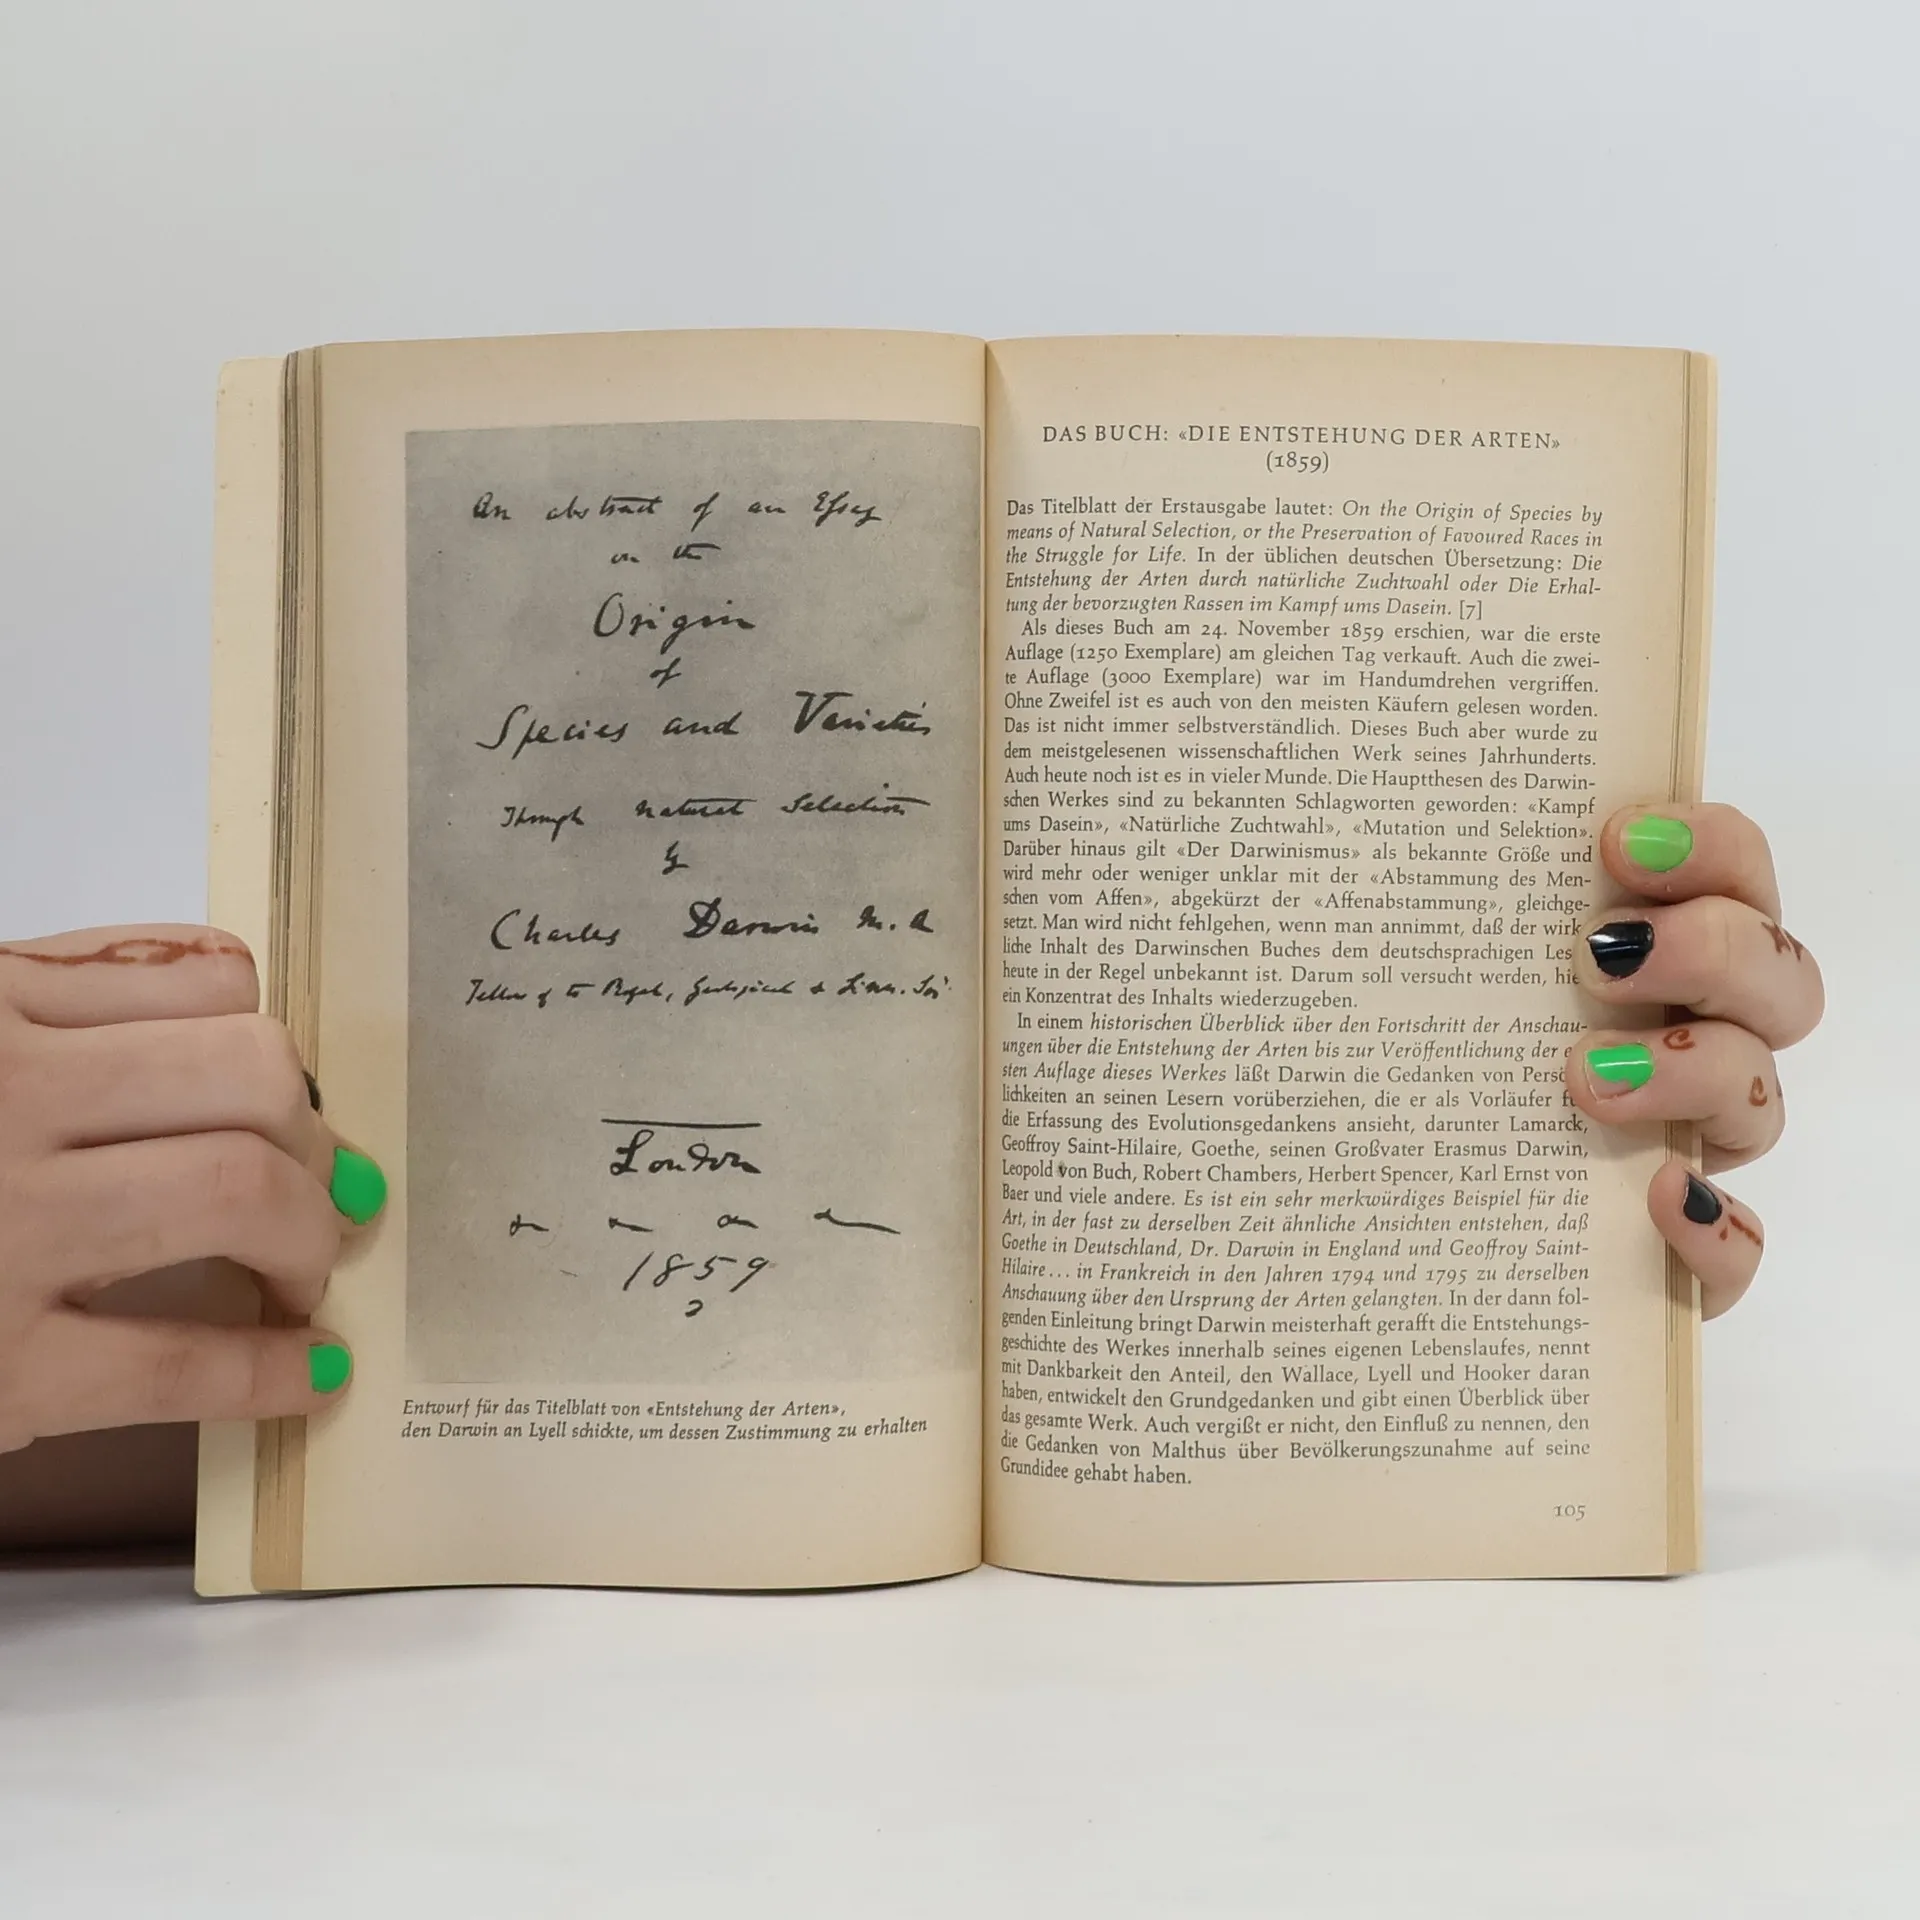 An abstract of an Essay
on the
Origin
of
Species and Varieties
Through natural Selection
by
Charles Darwin M. A
Fellow of the Royal, Geological & Linn. Soc.
London
& & & &
1859
Entwurf für das Titelblatt von «Entstehung der Arten»,
den Darwin an Lyell schickte, um dessen Zustimmung zu erhalten
DAS BUCH: «DIE ENTSTEHUNG DER ARTEN»
(1859)
Das Titelblatt der Erstausgabe lautet: On the Origin of Species by
means of Natural Selection, or the Preservation of Favoured Races in
the Struggle for Life. In der üblichen deutschen Übersetzung: Die
Entstehung der Arten durch natürliche Zuchtwahl oder Die Erhal-
tung der bevorzugten Rassen im Kampf ums Dasein. [7]
Als dieses Buch am 24. November 1859 erschien, war die erste
Auflage (1250 Exemplare) am gleichen Tag verkauft. Auch die zwei-
te Auflage (3000 Exemplare) war im Handumdrehen vergriffen.
Ohne Zweifel ist es auch von den meisten Käufern gelesen worden.
Das ist nicht immer selbstverständlich. Dieses Buch aber wurde zu
dem meistgelesenen wissenschaftlichen Werk seines Jahrhunderts.
Auch heute noch ist es in vieler Munde. Die Hauptthesen des Darwin-
schen Werkes sind zu bekannten Schlagworten geworden: «Kampf
ums Dasein», «Natürliche Zuchtwahl», «Mutation und Selektion».
Darüber hinaus gilt «Der Darwinismus» als bekannte Größe und
wird mehr oder weniger unklar mit der «Abstammung des Men-
schen vom Affen», abgekürzt der «Affenabstammung», gleichge-
setzt. Man wird nicht fehlgehen, wenn man annimmt, daß der wirk
liche Inhalt des Darwinschen Buches dem deutschsprachigen Les
heute in der Regel unbekannt ist. Darum soll versucht werden, hie
ein Konzentrat des Inhalts wiederzugeben.
In einem historischen Überblick über den Fortschritt der Anschau-
ungen über die Entstehung der Arten bis zur Veröffentlichung der e
sten Auflage dieses Werkes läßt Darwin die Gedanken von Persö
lichkeiten an seinen Lesern vorüberziehen, die er als Vorläufer f
die Erfassung des Evolutionsgedankens ansieht, darunter Lamarck,
Geoffroy Saint-Hilaire, Goethe, seinen Großvater Erasmus Darwin,
Leopold von Buch, Robert Chambers, Herbert Spencer, Karl Ernst von
Baer und viele andere. Es ist ein sehr merkwürdiges Beispiel für die
Art, in der fast zu derselben Zeit ähnliche Ansichten entstehen, daß
Goethe in Deutschland, Dr. Darwin in England und Geoffroy Saint-
Hilaire... in Frankreich in den Jahren 1794 und 1795 zu derselben
Anschauung über den Ursprung der Arten gelangten. In der dann fol-
genden Einleitung bringt Darwin meisterhaft gerafft die Entstehungs-
geschichte des Werkes innerhalb seines eigenen Lebenslaufes, nennt
mit Dankbarkeit den Anteil, den Wallace, Lyell und Hooker daran
haben, entwickelt den Grundgedanken und gibt einen Überblick über
das gesamte Werk. Auch vergißt er nicht, den Einfluß zu nennen, den
die Gedanken von Malthus über Bevölkerungszunahme auf seine
Grundidee gehabt haben.
105